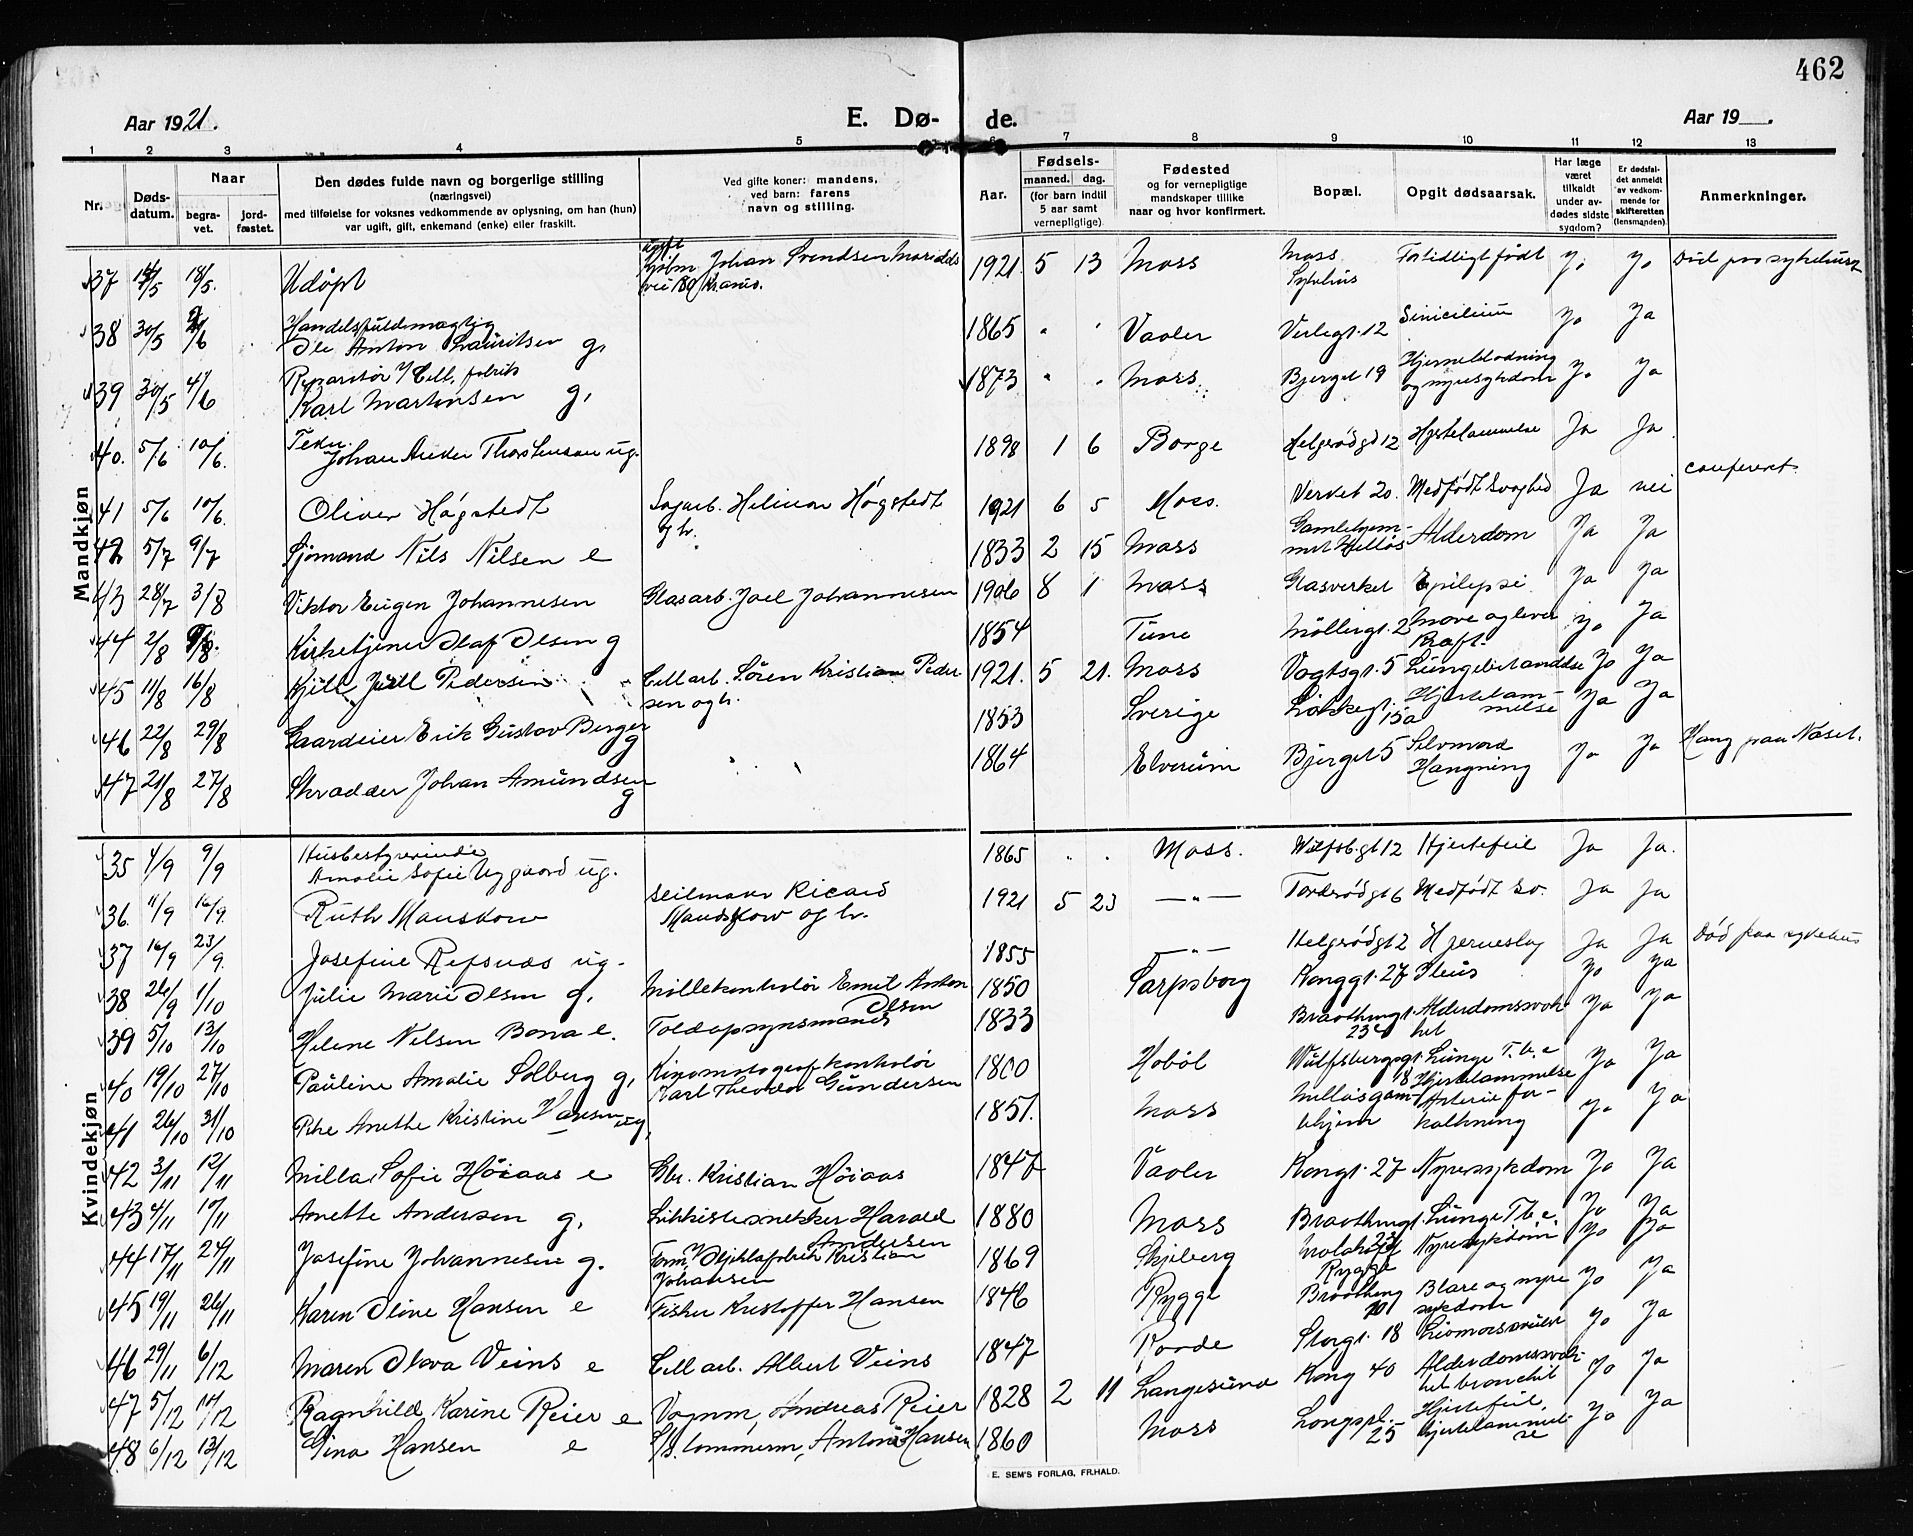 462
Aar 1921.
E. Dø-
de.
Aar 19__.
1 2 3 4 5 6 7 8 9 10 11 12 13
Nr.
Døds-
datum.
Naar
begra-
vet.
jord-
fæstet.
Den dødes fulde navn og borgerlige stilling
(næringsvei)
med tilføielse for voksnes vedkommende av oplysning, om han (hun)
var ugift, gift, enkemand (enke) eller fraskilt.
Ved gifte koner: mandens,
ved barn: farens
navn og stilling.
Aar.
Fødsels-
maaned. dag.
(for barn indtil
5 aar samt
vernepligtige).
Fødested
og for vernepligtige
mandskaper tillike
naar og hvor konfirmert.
Bopæl.
Opgit dødsaarsak.
Har læge
været
tilkaldt
under av-
dødes sidste
sygdom?
Er dødsfal-
det anmeldt
av vedkom-
mende for
skifteretten
(lensmanden).
Anmerkninger.
Mandkjøn
37 18/5. Udøpt Johan Svendsen 1921 5 13 Moss Moss Sykehus Fortidligt født Jo Jo
38 30/5 Handelsfuldmægtig Ole Anton Lauritsen g. 1865 " " Vaaler Verlegt. 12 Jo Ja
39 30/5 4/6 Karl Martinsen g. 1873 " " Moss Bjerget 19 Hjerneblødning og nyresykdom Jo Ja
40. 5/6 10/6. Johan Thorstensen ug. 1898 1 6 Borge Helgerødgd 12 Hjertelammelse Ja Ja
41 5/6 10/6. Oliver Høgstedt Høgstedt og h. 1921 6 5 Moss. Vervet 20. Medfødt svaghed Ja nei conferert
42 5/7 9/7 Sjømand Nils Nilsen e 1833 2 15 Moss Alderdom Ja Ja
43 28/7 3/8 Viktor Eugen Johannesen Glasarb. Joel Johannesen 1906 8 1 Moss Glasverket Epilepsi Ja Ja
44 2/8 Kirketjener Olaf Olsen g 1854 Tune Møllergt. 2 Mave og lever Kræft. Jo Ja
45 11/8 16/8 Kjell Juell Pedersen Cellarb. Søren Kristian Pedersen og h. 1921. 5 21. Moss Vogtsgt. 5 Lungebetændelse Jo Ja
46 22/8 29/8 Gaardeier Erik Gustav Berger g 1853 Sverige Løkkegt. 15a Hjertelammelse Ja Ja
47 21/8 27/8 Skrædder Johan Amundsen g 1864 Elverum Bjerget 5 Selvmord Hængning Ja Ja Hang paa Næset.
Kvindekjøn
35 4/9 9/9 Husbestyrerinde Amalie Sofie Nygaard ug. 1865 " " Moss. Wulfsb.gt 12 Hjertefeil Ja Ja.
36. 11/9 16/9. Ruth Manskow Seilmaker Ricard Manskow og h. 1921 5 23 —"— 6 Medfødt sv. Ja Ja
37 16/9 23/9. Josefine Refsnæs ug. 1855 —"— Helgerødgt 2 Hjerneslag Ja Ja Død paa sykehus
38 26/9 1/10 Julie Marie Olsen g. Møllekontrolør Emil Anton Olsen 1850 Sarpsborg Konggt. 27 Ileus Jo Ja
39 5/10 13/10 Helene Nilsen Bona e. Toldopsynsmand 1833 Alderdomssvakhet Ja Ja
40 19/10 27/10 Pauline Amalie Solberg g. Kinematografkontrolør Karl Theodor Gundersen 1860 Hobøl Wulfsbergsgt. 18 Lunge T.b.c Hjertelammelse Jo Ja
41 26/10 31/10 Anethe Kristine Hansen ug. 1851. Moss Arterieforkalkning Ja Ja
42 3/11 12/11 Milla Sofie Høiaas e Gbr. Kristian Høiaas 1847 Vaaler Kongt. 27 Nyresykdom Jo Ja
43 4/11 10/11 Anette Andersen g. Likkistesnekker Harald Andersen 1880 Moss Lunge Tb.c. Jo Ja
44 17/11 24/11 Josefine Johannesen g. Kristian Johansen 1869 Skjeberg Rygge Nyresykdom Jo Ja
45 19/11 26/11 Karen Oline Hansen e Fisker Kristoffer Hansen 1846 Rygge Blære og nyre sykdom Jo Ja
46 29/11 6/12 Maren Olava Veins e Cellarb. Albert Veins 1847 Raade Storgt. 18 Livmorsvulst Jo Ja
47 5/12 14/12 Ragnhild Karine Reier e Vognm. Andreas Reier 1828 2 11 Langesund Kong 40 Alderdomssvakhet bronchit Jo Ja
48 6/12 13/12 Gina Hansen e Anton Hansen 1860 Moss 25 Hjertefeil, hjertelammelse Jo Ja
E. SEM'S FORLAG, FR.HALD.